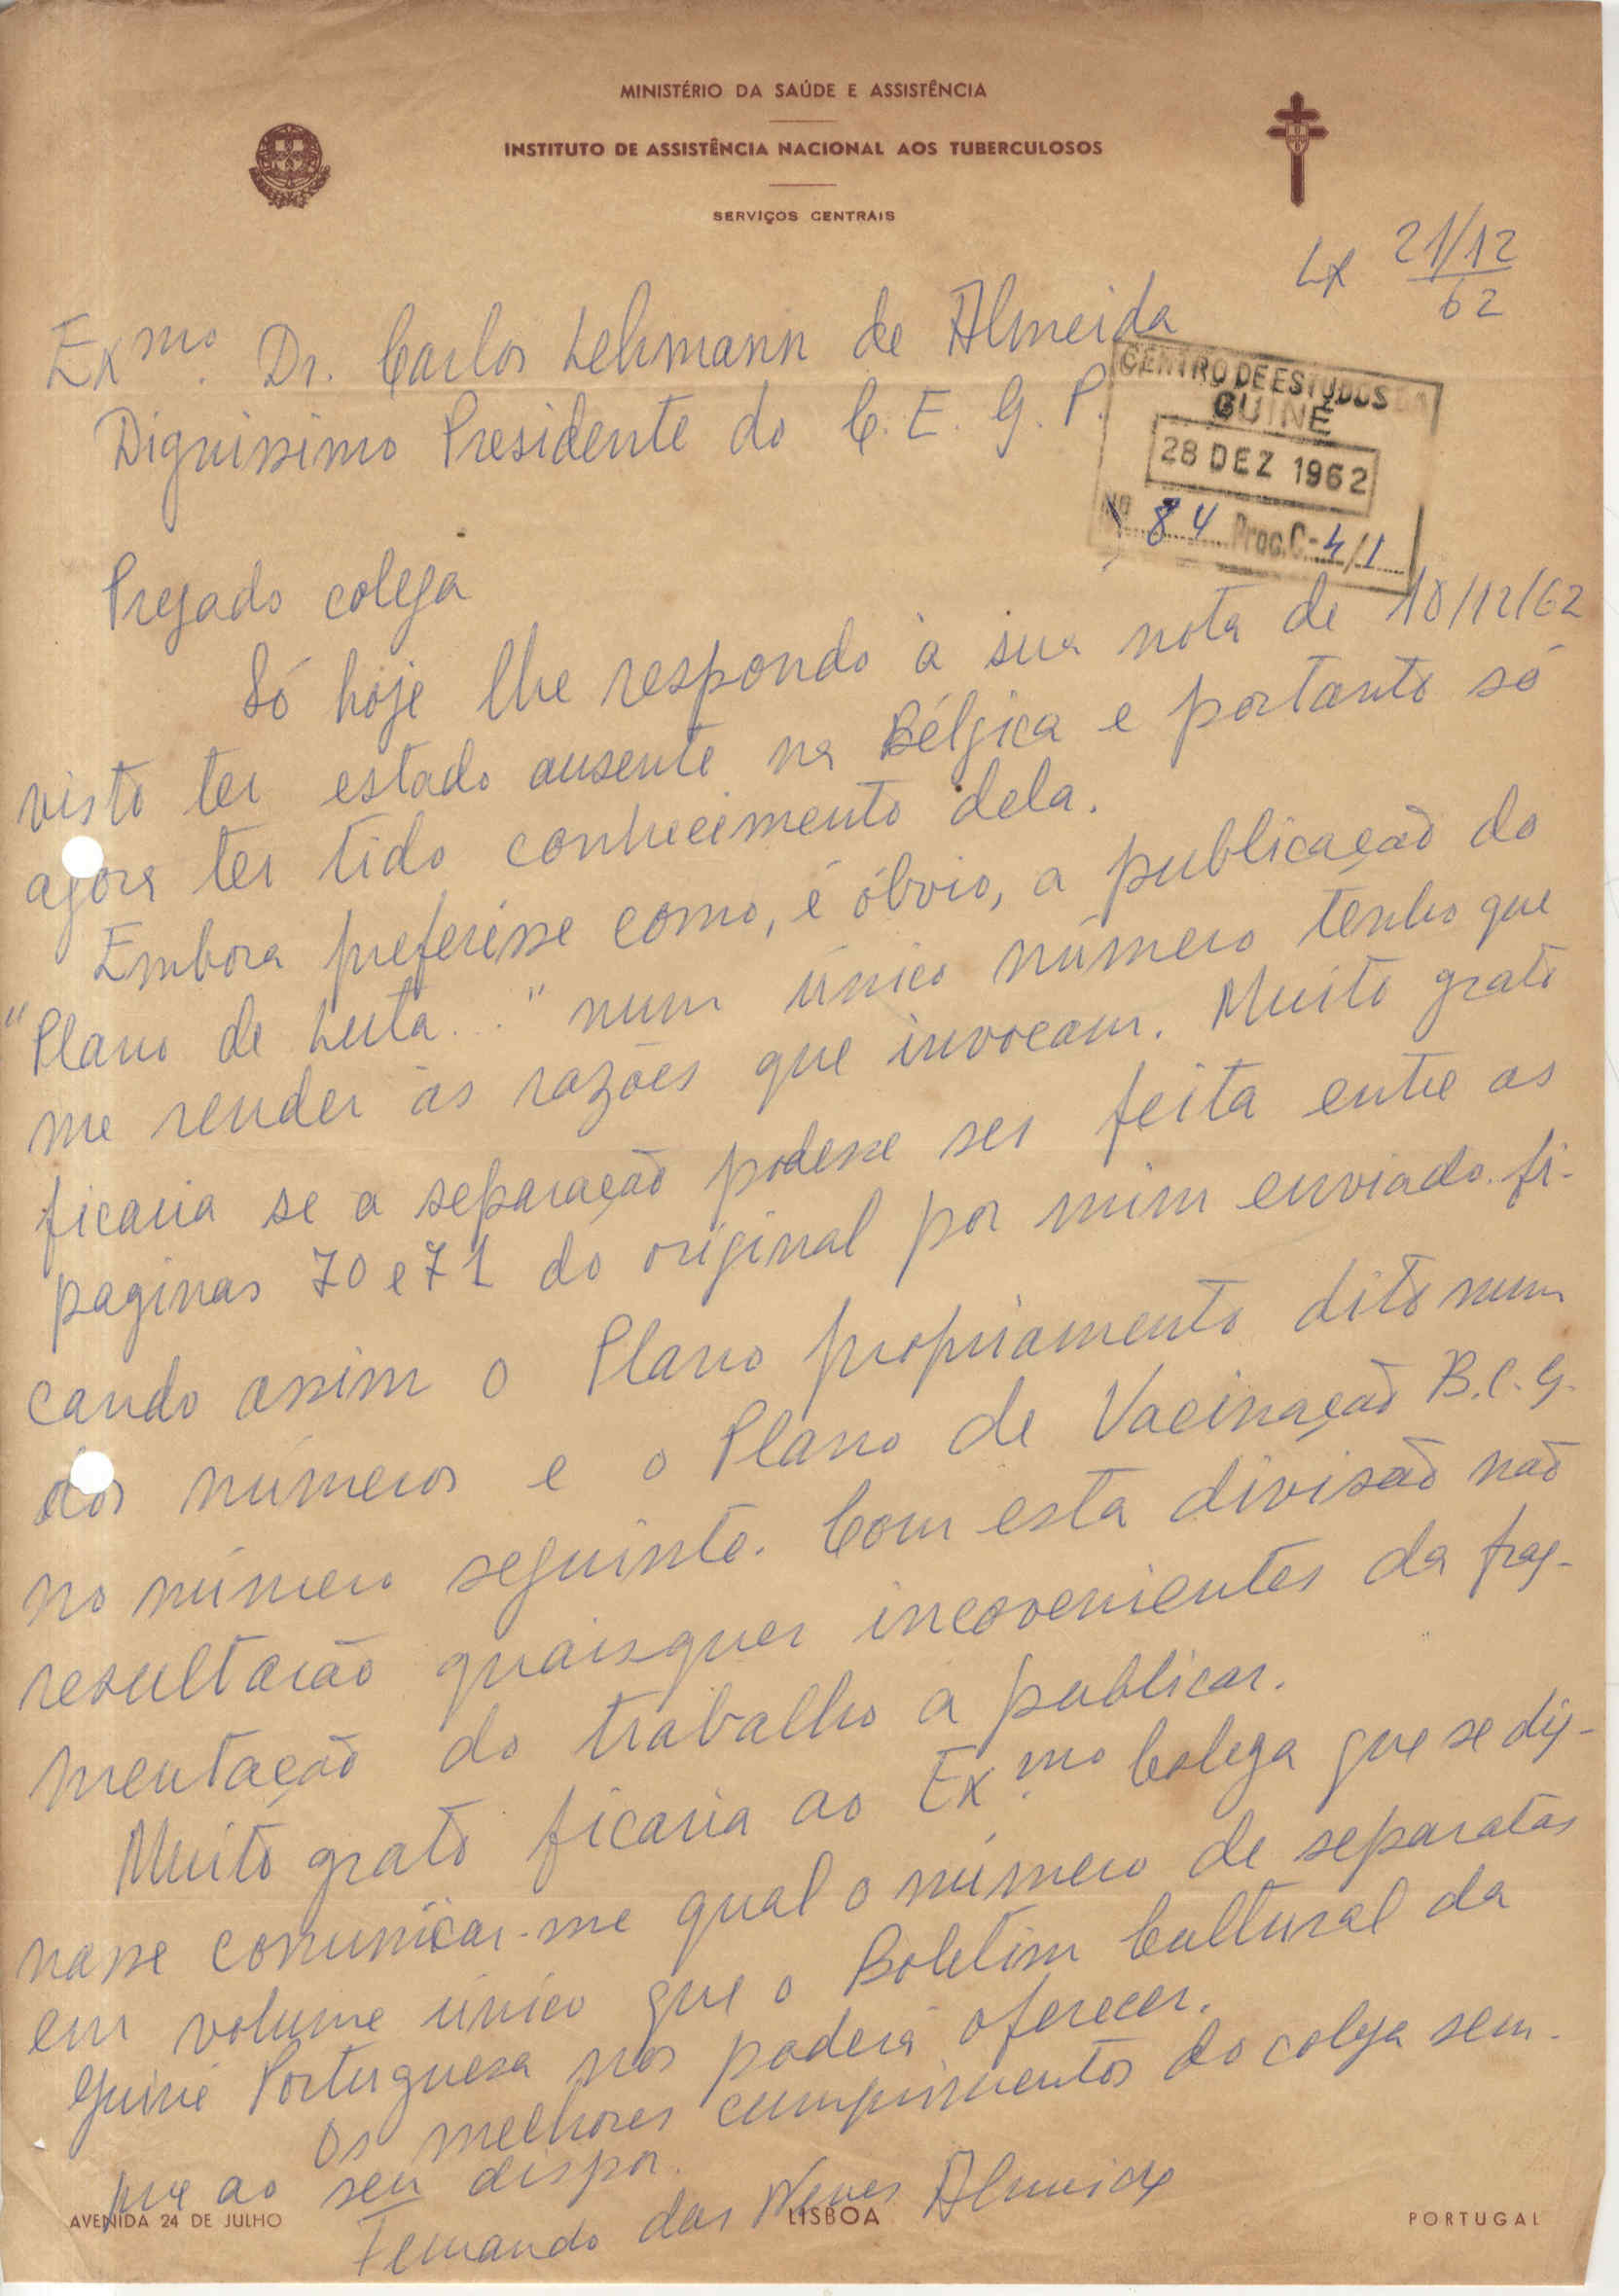 MINISTÉRIO DA SAÚDE E ASSISTÊNCIA
INSTITUTO DE ASSISTÊNCIA NACIONAL AOS TUBERCULOSOS
SERVIÇOS CENTRAIS
Lx 21/12/62
Exmo. Dr. Carlos Lehmann de Almeida
Digníssimo Presidente do C. E. G. P.
CENTRO DE ESTUDOS DA
GUINÉ
28 DEZ 1962
Nº 84 Proc. C-4/1
Prezado colega
Só hoje lhe respondo à sua nota de 10/12/62
visto ter estado ausente na Bélgica e portanto só
agora ter tido conhecimento dela.
Embora preferisse como, é óbvio, a publicação do
"Plano de Luta..." num único número tenho que
me render às razões que invocam. Muito grato
ficaria se a separação podesse ser feita entre as
paginas 70 e 71 do original por mim enviado fi-
cando assim o Plano propriamento dito num
dos números e o Plano de Vacinação B.C.G.
no número seguinte. Com esta divisão não
resultarão quaisquer inconvenientes da frag-
mentação do trabalho a publicar.
Muito grato ficaria ao Exmo. Colega que se dig-
nasse comunicar-me qual o número de separatas
em volume único que o Boletim Cultural da
Guiné Portuguesa nos poderá oferecer.
Os melhores cumprimentos do colega sem-
pre ao seu dispor.
Fernando das Neves Almeida
AVENIDA 24 DE JULHO
LISBOA
PORTUGAL